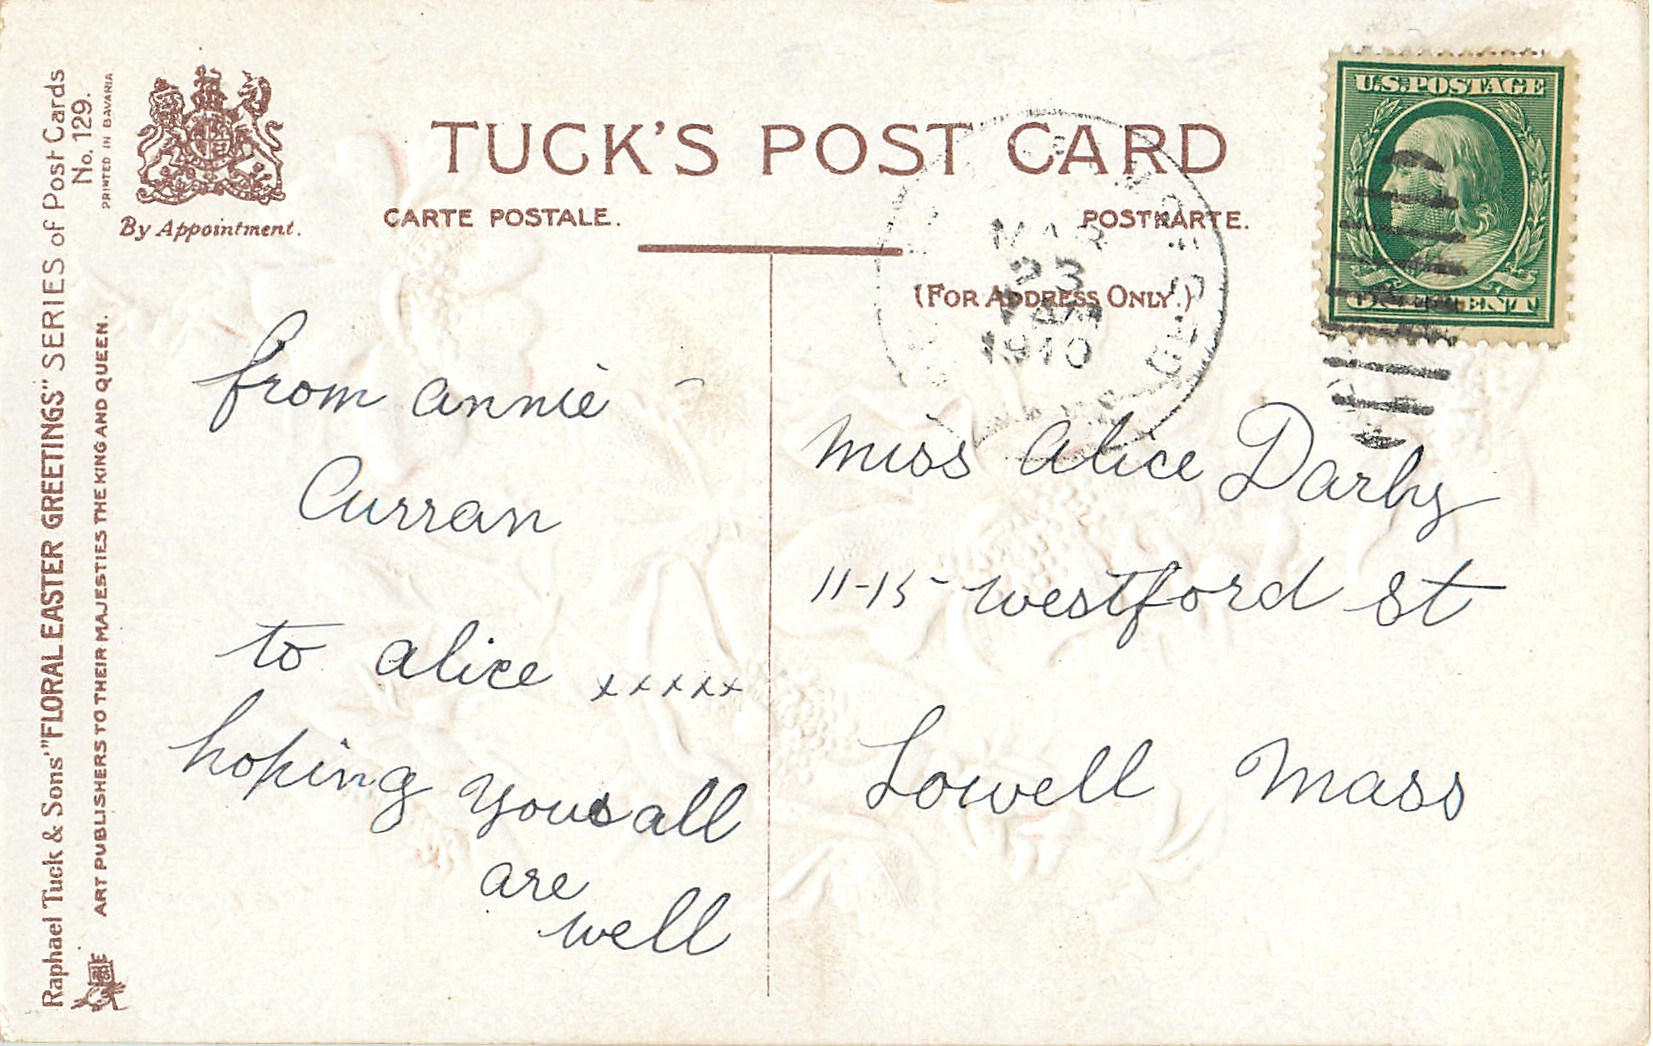 Raphael Tuck & Sons' "FLORAL EASTER GREETINGS" SERIES of Post Cards
No. 129.
PRINTED IN BAVARIA
ART PUBLISHERS TO THEIR MAJESTIES THE KING AND QUEEN.
By Appointment.
TUCK'S POST CARD
CARTE POSTALE.
POSTKARTE.
(FOR ADDRESS ONLY.)
U.S. POSTAGE
ONE CENT
MAR
23
AM
1910
from annie
Curran
to alice xxxxx
hoping yous all
are
well
Miss Alice Darby
11-15 westford St
Lowell Mass